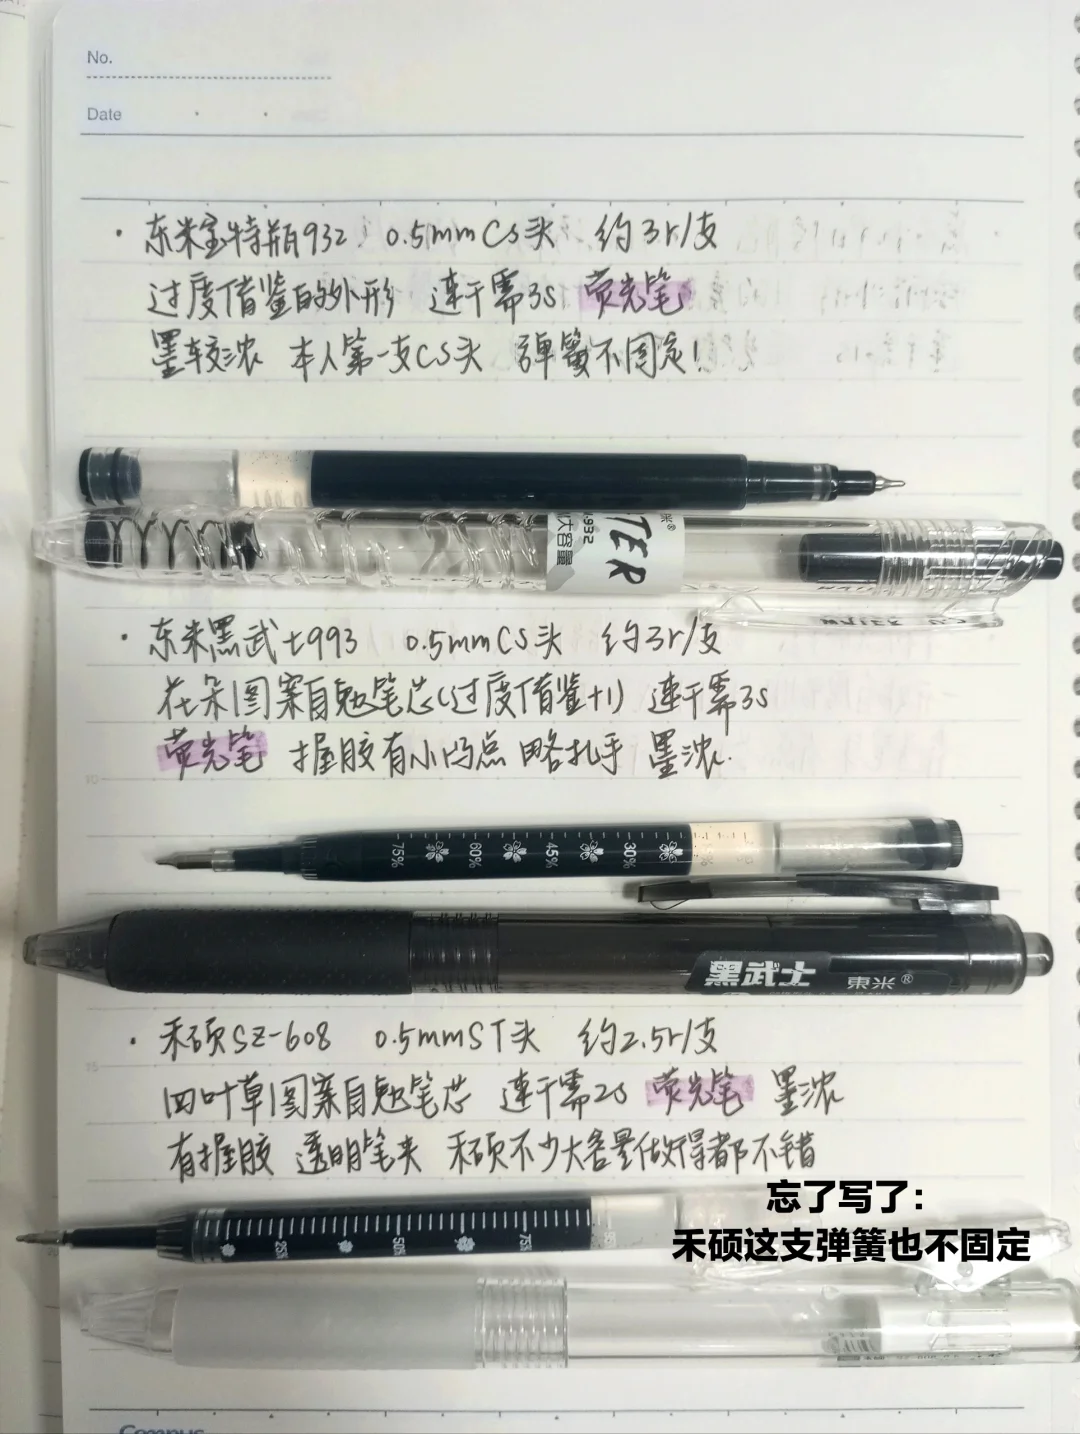 No.
Date
· 东米金特瓶932 0.5mmCS头 约3r/支
过度借鉴的外形 速干需3s 荧光笔
墨较浓 本人第一支CS头 弹簧不固定!
932
大容量
TER
米®
· 东米黑武士993 0.5mmCS头 约3r/支
花朵图案自勉笔芯(过度借鉴+1) 速干需3s
荧光笔 握胶有小凸点 略扎手 墨浓.
75% 60% 45% 30%
黑武士 東米®
· 禾硕SZ-608 0.5mmST头 约2.5r/支
四叶草图案自勉笔芯 速干需2s 荧光笔 墨浓
有握胶 透明笔夹 禾硕不少大容量做得都不错
忘了写了：
禾硕这支弹簧也不固定
25% 50% 75%
Campus